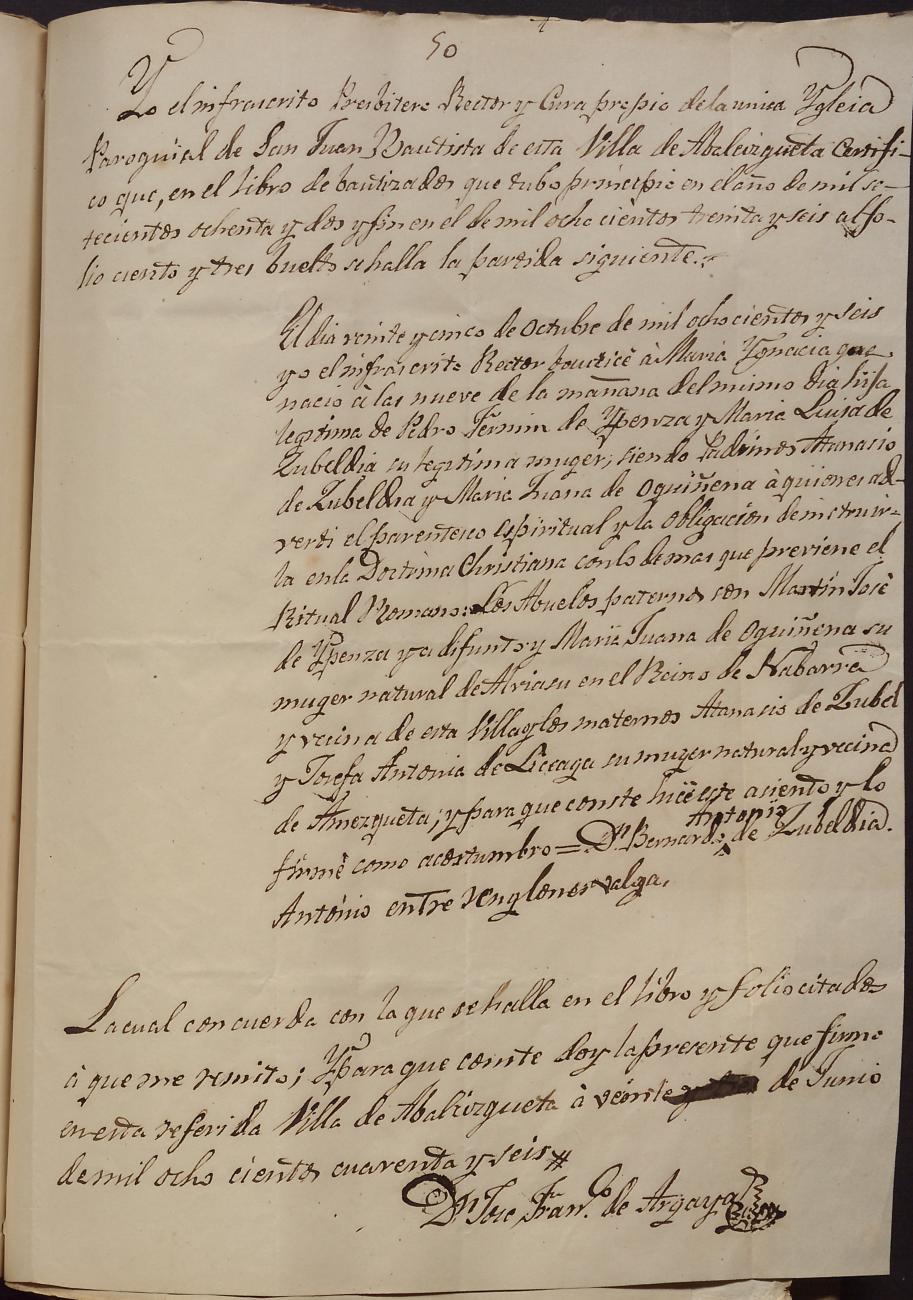 50
Yo el infrascrito Presbitero Rector y Cura propio de la unica Yglecia
Paroquial de San Juan Bautista de esta Villa de Abalcizqueta Certifi-
co que, en el libro de bautizados que tubo principio en el año de mil se-
tecientos ochenta y dos y fin en el de mil ocho cientos treinta y seis al fo-
lio ciento y tres buelto se halla la partida siguiente.
El dia veinte y cinco de Octubre de mil ocho cientos y seis
yo el infrascrito Rector bauticè à Maria Ygnacia que
nacio à las nueve de la mañana del mismo dia hija
legitima de Pedro Fermin de Ypenza y Maria Luisa de
Zubeldia su legitima muger; siendo Padrinos Atanasio
de Zubeldia y Maria Juana de Oguiñena à quienes ad-
verti el parentesco espiritual y la obligacion de instruir-
la en la Doctrina Christiana con lo demas que previene el
Ritual Romano: Los Abuelos paternos son Martin Josè
de Ypenza ya difunto y Maria Juana de Oguiñena su
muger natural de Atriasu en el Reino de Nabarra
y vecina de esta Villa y los maternos Atanasio de Zubel
y Josefa Antonia de Liceaga su muger natural y vecina
de Amezqueta; y para que conste hice este asiento y lo
firmè como acostumbro = Dn. Bernardo Antonio de Zubeldia.
António entre renglones valga.
La cual concuerda con la que se halla en el libro y folio citados
à que me remito; Y para que conste doy la presente que firmo
en esta referida Villa de Abalcizqueta à veinte de Junio
de mil ocho cientos cuarenta y seis #
Dn. Jose Franco. de Argaya